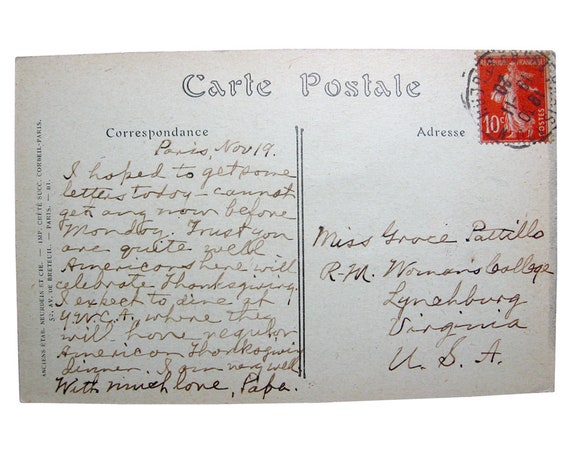 Carte Postale
Correspondance
Adresse
Paris, Nov 19.
I hoped to get some
letters today - cannot
get any now before
Monday. Trust you
are quite well
Americans here will
celebrate Thanksgiving
I expect to dine at
Y.W.C.A. where they
will have regular
American Thanksgiving
dinner. I am very well
With much love, Papa.
Miss Grace Pattillo
R-M. Woman's College
Lynchburg
Virginia
U. S. A.
ANCIENS ÉTAB. NEURDEIN ET CIE. — IMP. CRÉTÉ SUCC. CORBEIL-PARIS.
52, AV. DE BRETEUIL. — PARIS. — 81.
RÉPUBLIQUE FRANÇAISE
10c
POSTES